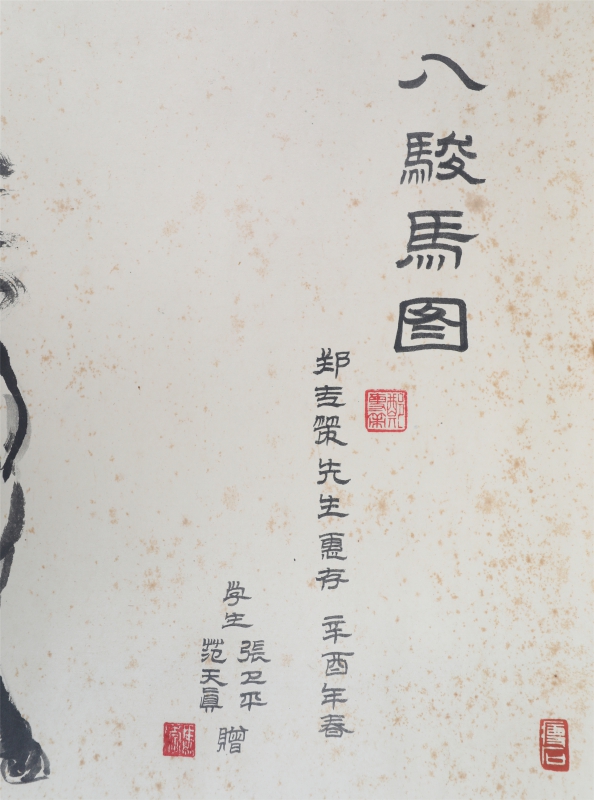 八駿馬图
郑专策先生惠存 辛酉年春
学生
張卫平
范天眞
贈